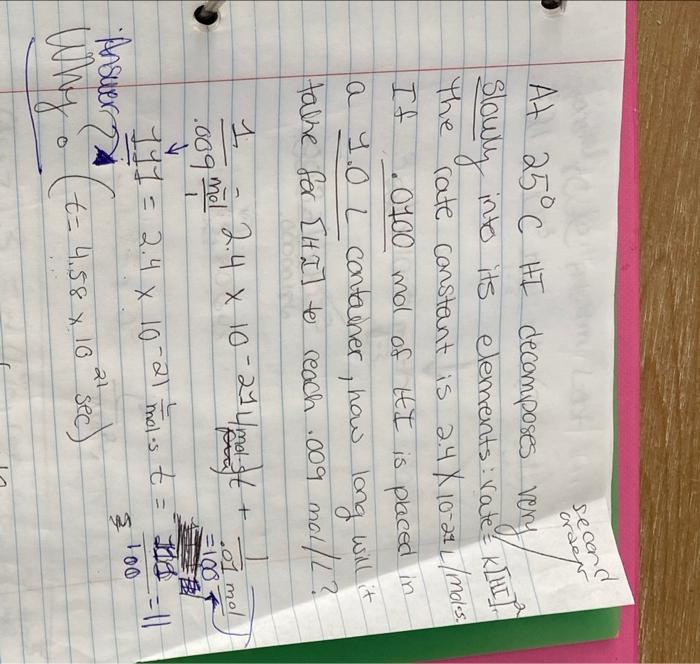 second order
At 25°C HI decomposes very
slowly into its elements: rate = K[HI]²
the rate constant is 2.4 x 10-21 L/mol·s.
If .0100 mol of HI is placed in
a 1.0 L container, how long will it
take for [HI] to reach .009 mol/L?
1/.009 mol/1 = 2.4 x 10-21 L/mol·s t + 1/.01 mol
=100
111 = 2.4 x 10-21 L/mol·s t = /100 = 11
Answer?
Why? (t = 4.58 x 10²¹ sec)